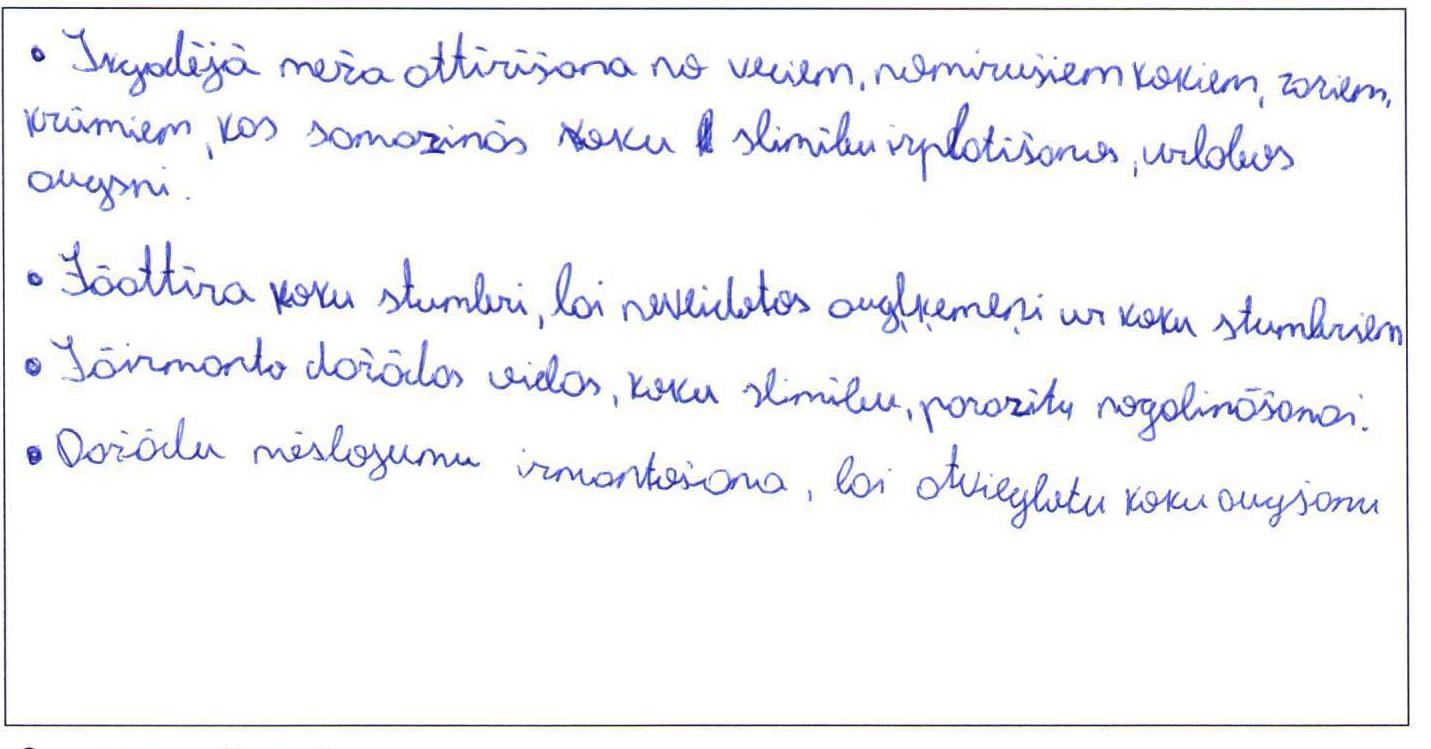 • Ikgadējā meža attīrīšana no veciem, nomirušiem kokiem, zariem,
krūmiem, kas samazinās koku slimību izplatīšanos, uzlabos
augsni.
• Jāattīra koku stumbri, lai neveidotos augļķermeņi uz koku stumbriem
• Jāizmanto dažādas vielas, koku slimību, parazītu nogalināšanai.
• Dažādu mēslojumu izmantošana, lai atvieglotu koku augšanu